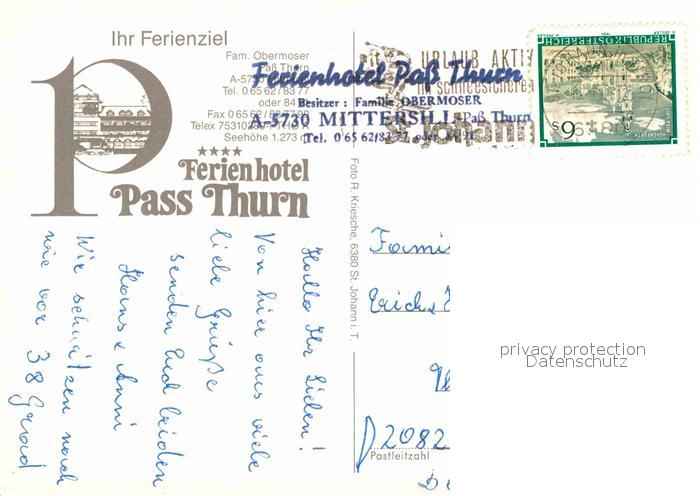 Ihr Ferienziel
Fam. Obermoser
Paß Thurn
Tel. 0 65 62/83 77
Seehöhe 1.273
★★★★
Ferienhotel
Pass Thurn
Ferienhotel Paß Thurn
Besitzer : Familie OBERMOSER
A-5730 MITTERSILL, Paß Thurn
Tel. 0 65 62/83 77 oder
URLAUB AKTIV
schneesicheren
St. Johann
REPUBLIK ÖSTERREICH
S 6
Foto R. Kriesche, 6380 St. Johann i. T.
Hallo Ihr Lieben!
Von hier aus viele
liebe Grüße
senden Euch beiden
Hans & Anni
Wir schwitzen noch
wie vor 38 Grad
Fami
Erichs
D2082
Postleitzahl
privacy protection
Datenschutz